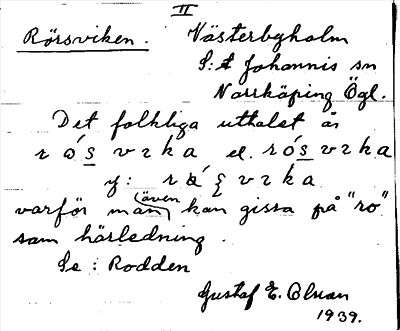 II
Rörsviken. Västerbyholm
S:t Johannis sn
Norrköping Ögl.
Det folkliga uttalet är
r ó s v z k a el. r ó s v z k a
y: r v z k a
varför man (även) kan gissa på "ro"
som härledning.
Se: Rodden
Gustaf E. Olsson
1939.